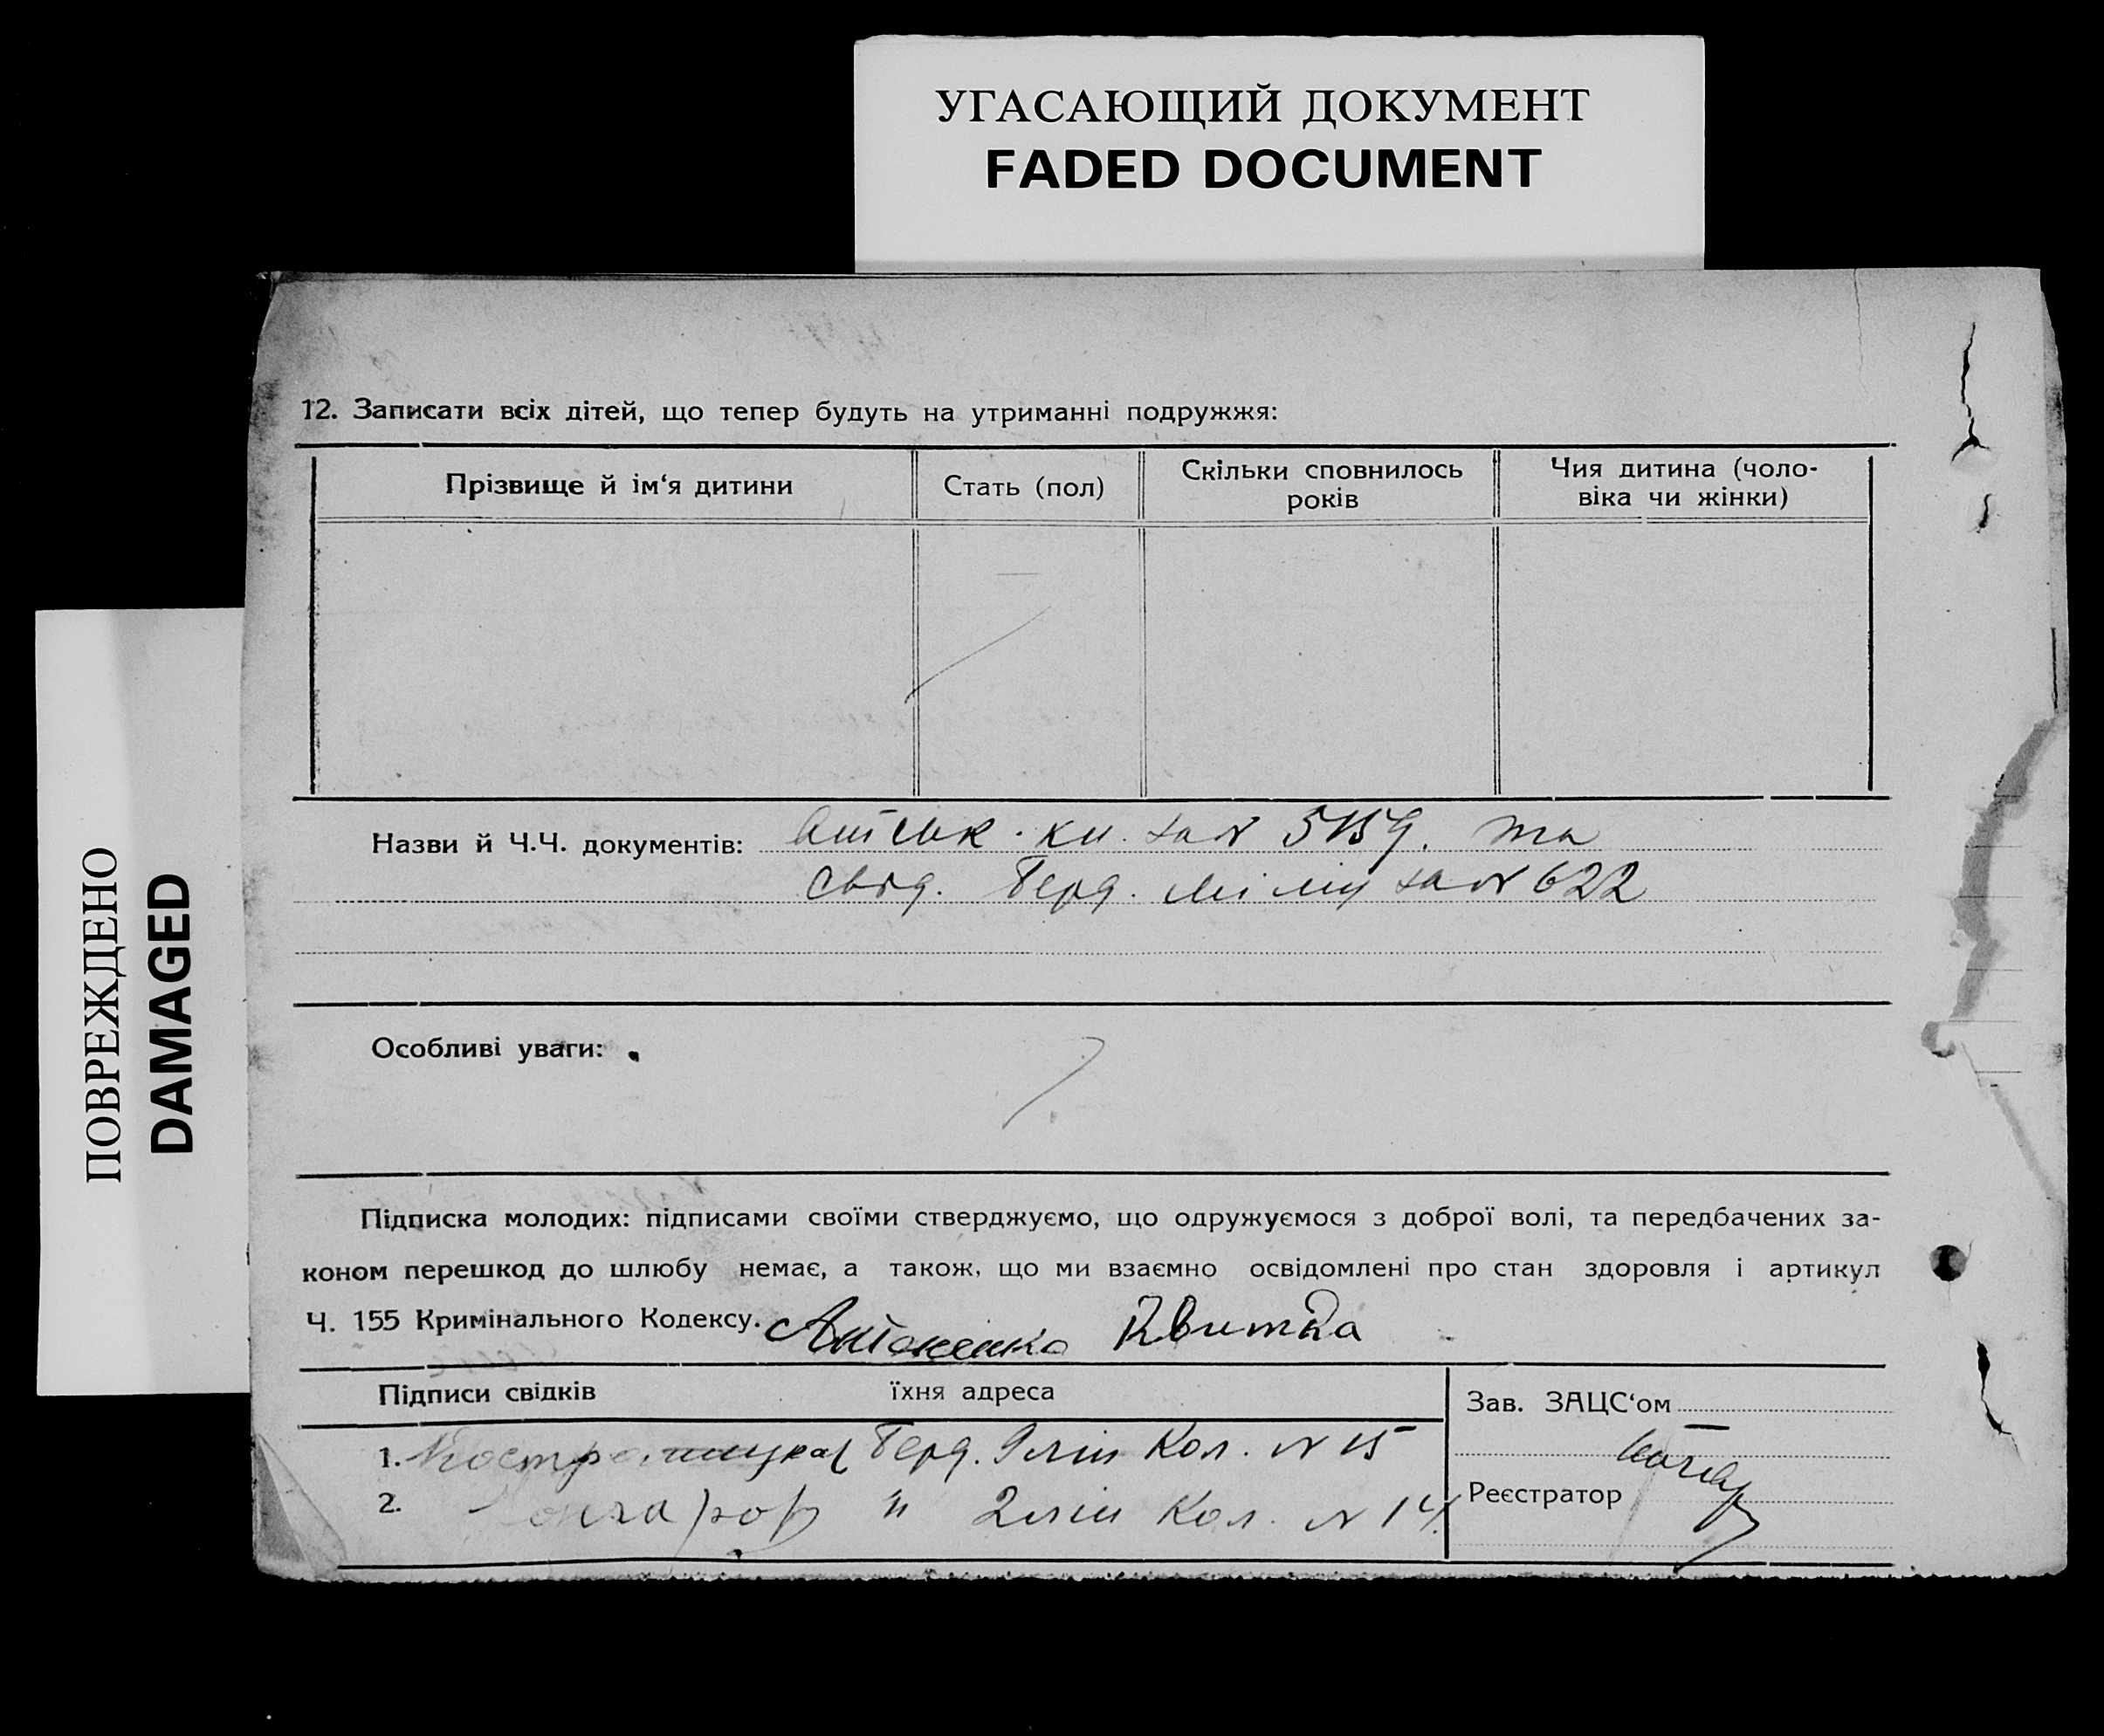 УГАСАЮЩИЙ ДОКУМЕНТ
FADED DOCUMENT
ПОВРЕЖДЕНО
DAMAGED
12. Записати всіх дітей, що тепер будуть на утриманні подружжя:
Прізвище й ім‘я дитини
Стать (пол)
Скільки сповнилось
років
Чия дитина (чоло-
віка чи жінки)
Назви й Ч.Ч. документів: кн. за № та
Свід. Берд. за № 622
Особливі уваги:
Підписка молодих: підписами своїми стверджуємо, що одружуємося з доброї волі, та передбачених за-
коном перешкод до шлюбу немає, а також, що ми взаємно освідомлені про стан здоровля і артикул
Ч. 155 Кримінального Кодексу. Антоненко Квитка
Підписи свідків їхня адреса
Зав. ЗАЦС‘ом
1. Берд. лін Кол. № 15
2. " 2 лін Кол. № 14
Реєстратор